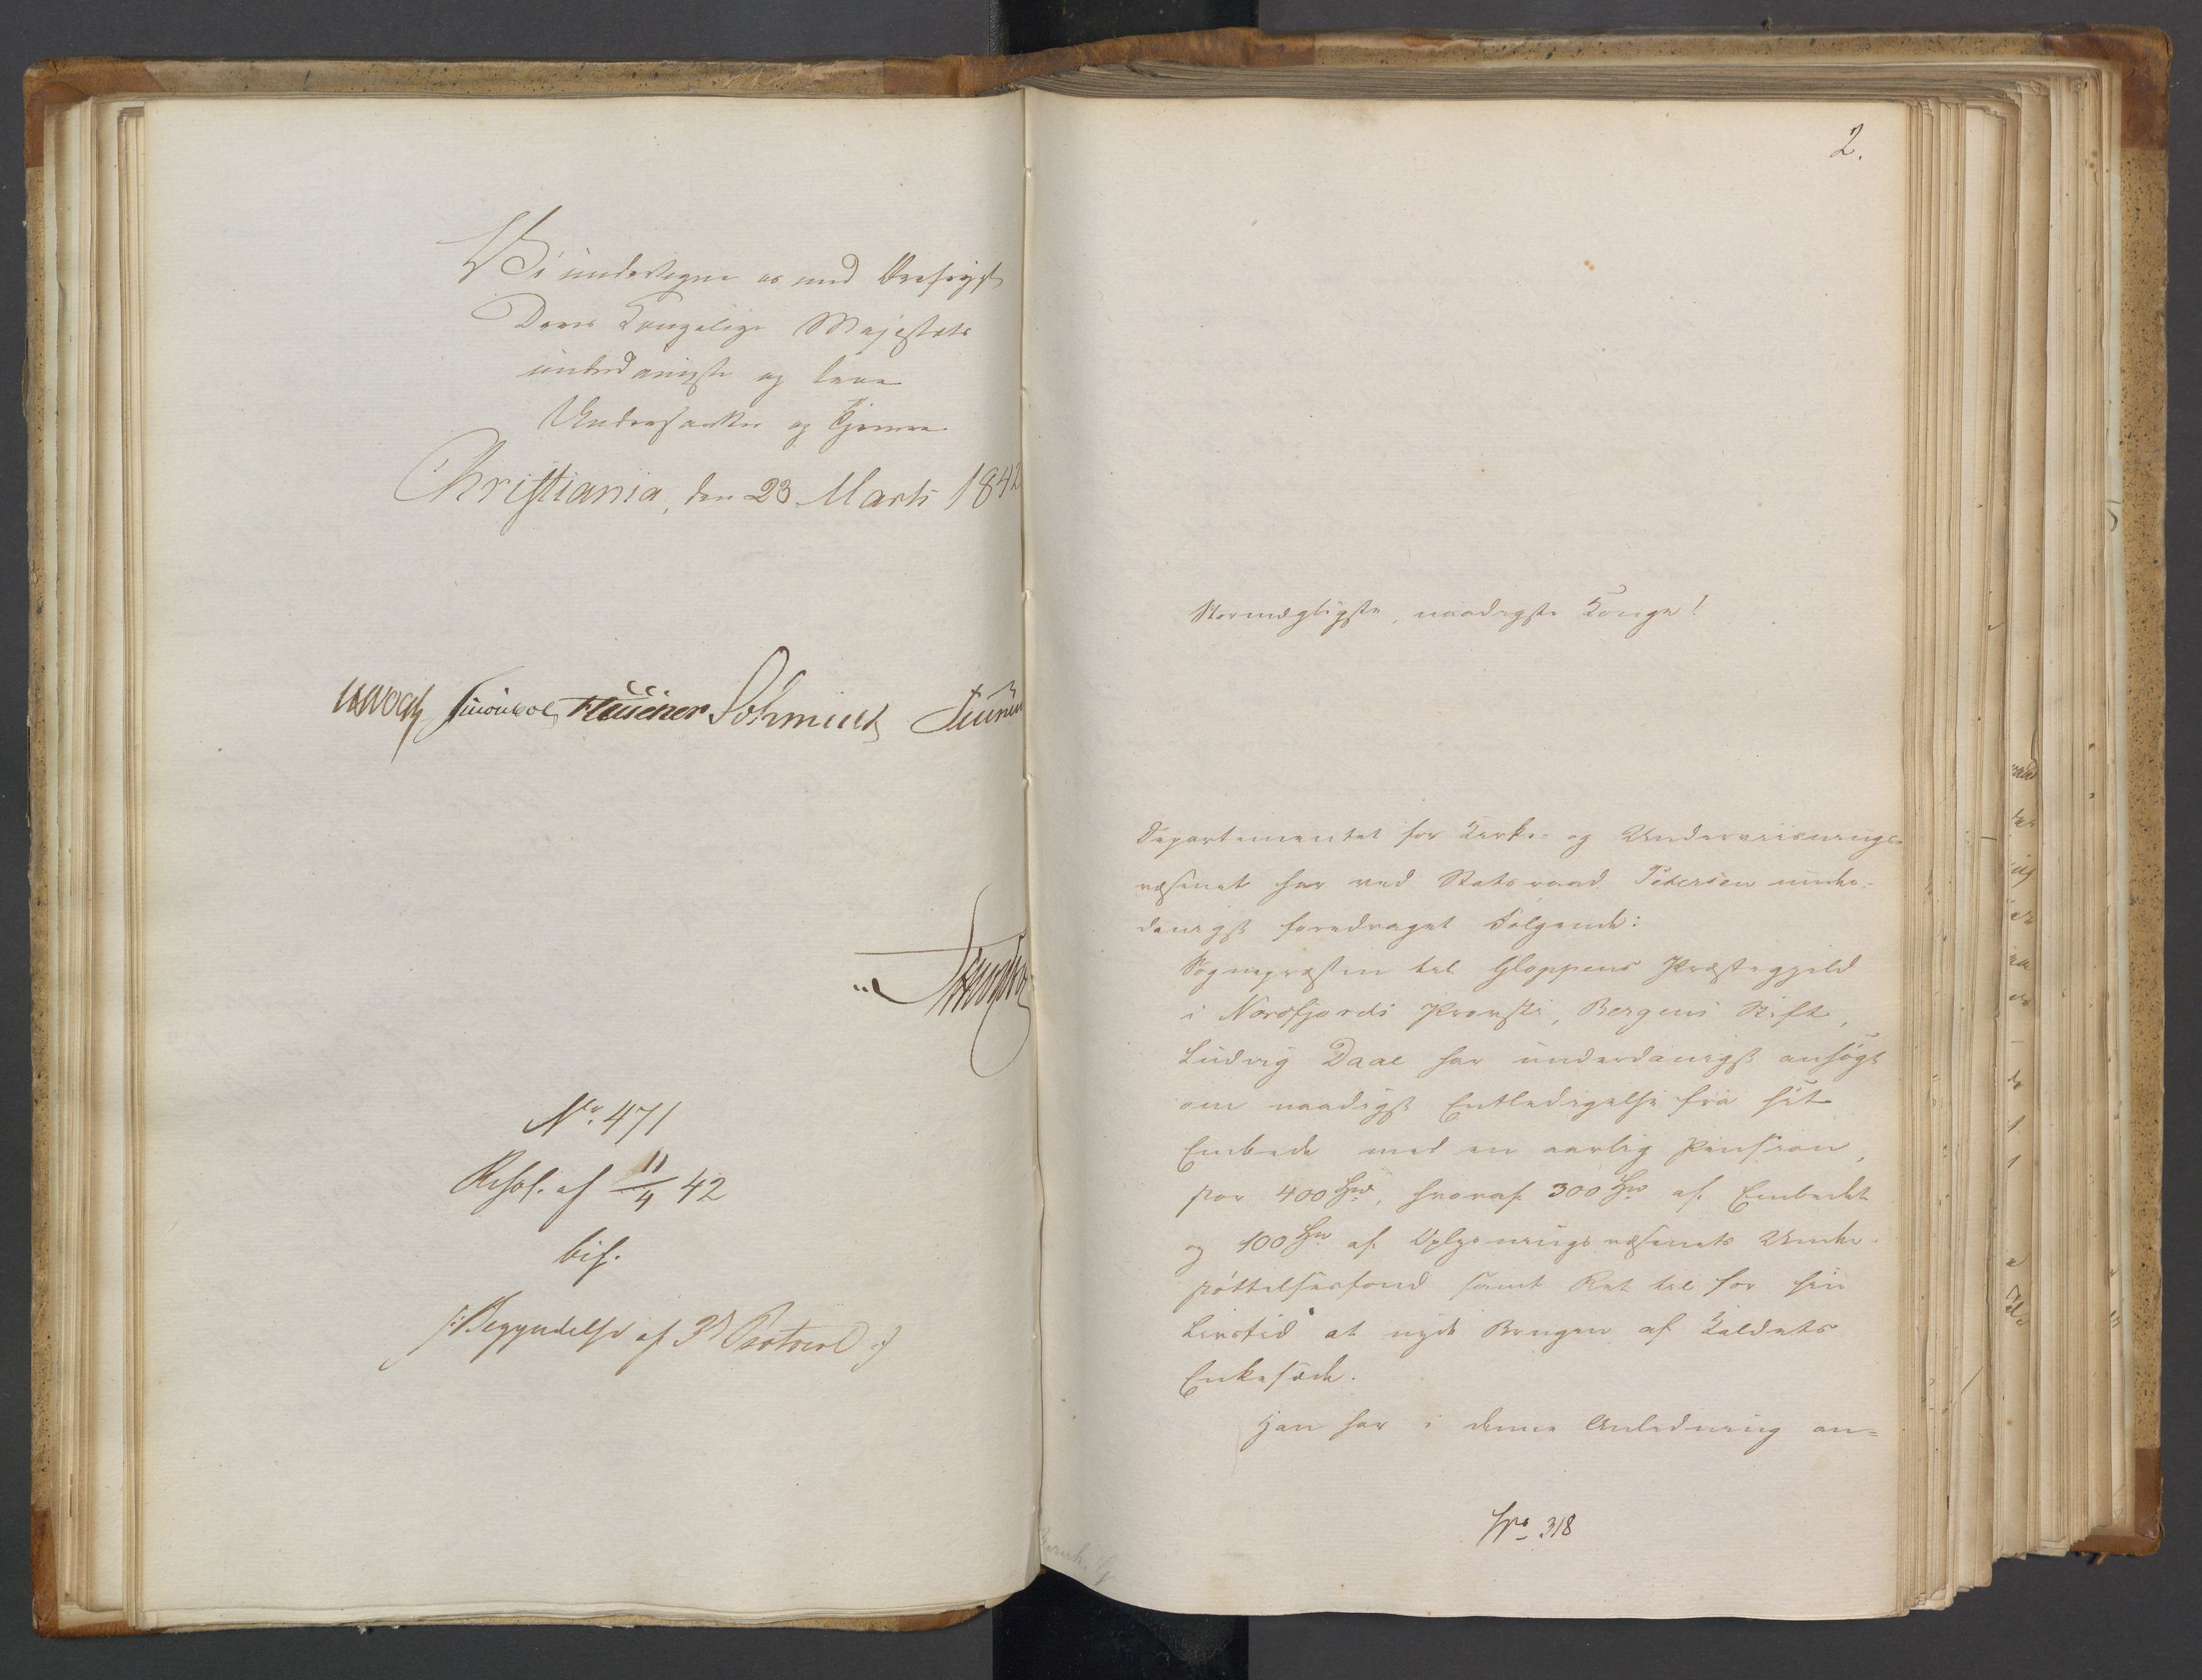 Vi undertegne os med Ærefrygt
Deres Kongelige Majestæts
underdanigste og troe
Undersaatter og Tjenere
Christiania, den 23 Marts 1842
JHVogt Sibbern Schmidt
No. 471
Resol. af 11/4 42
bif.
/: Begyndelse af 3d Protocol :/
2.
Stormægtigste, naadigste Konge!
Departementet for Kirke- og Underviisnings-
væsenet har ved Statsraad Petersen under-
danigst foredraget Følgende:
Sognepræsten til Gloppens Præstegjeld
i Nordfjords Provsti, Bergens Stift,
Ludvig Daae har underdanigst ansøgt
om naadigst Entledigelse fra sit
Embede med en aarlig Pension,
stor 400 Spd, hvoraf 300 Spd af Embedet
og 100 Spd af Oplysningsvæsenets Under-
støttelsesfond samt Ret til for sin
Livstid at nyde Brugen af Kaldets
Enkesæde.
Han har i denne Anledning an-
No 318